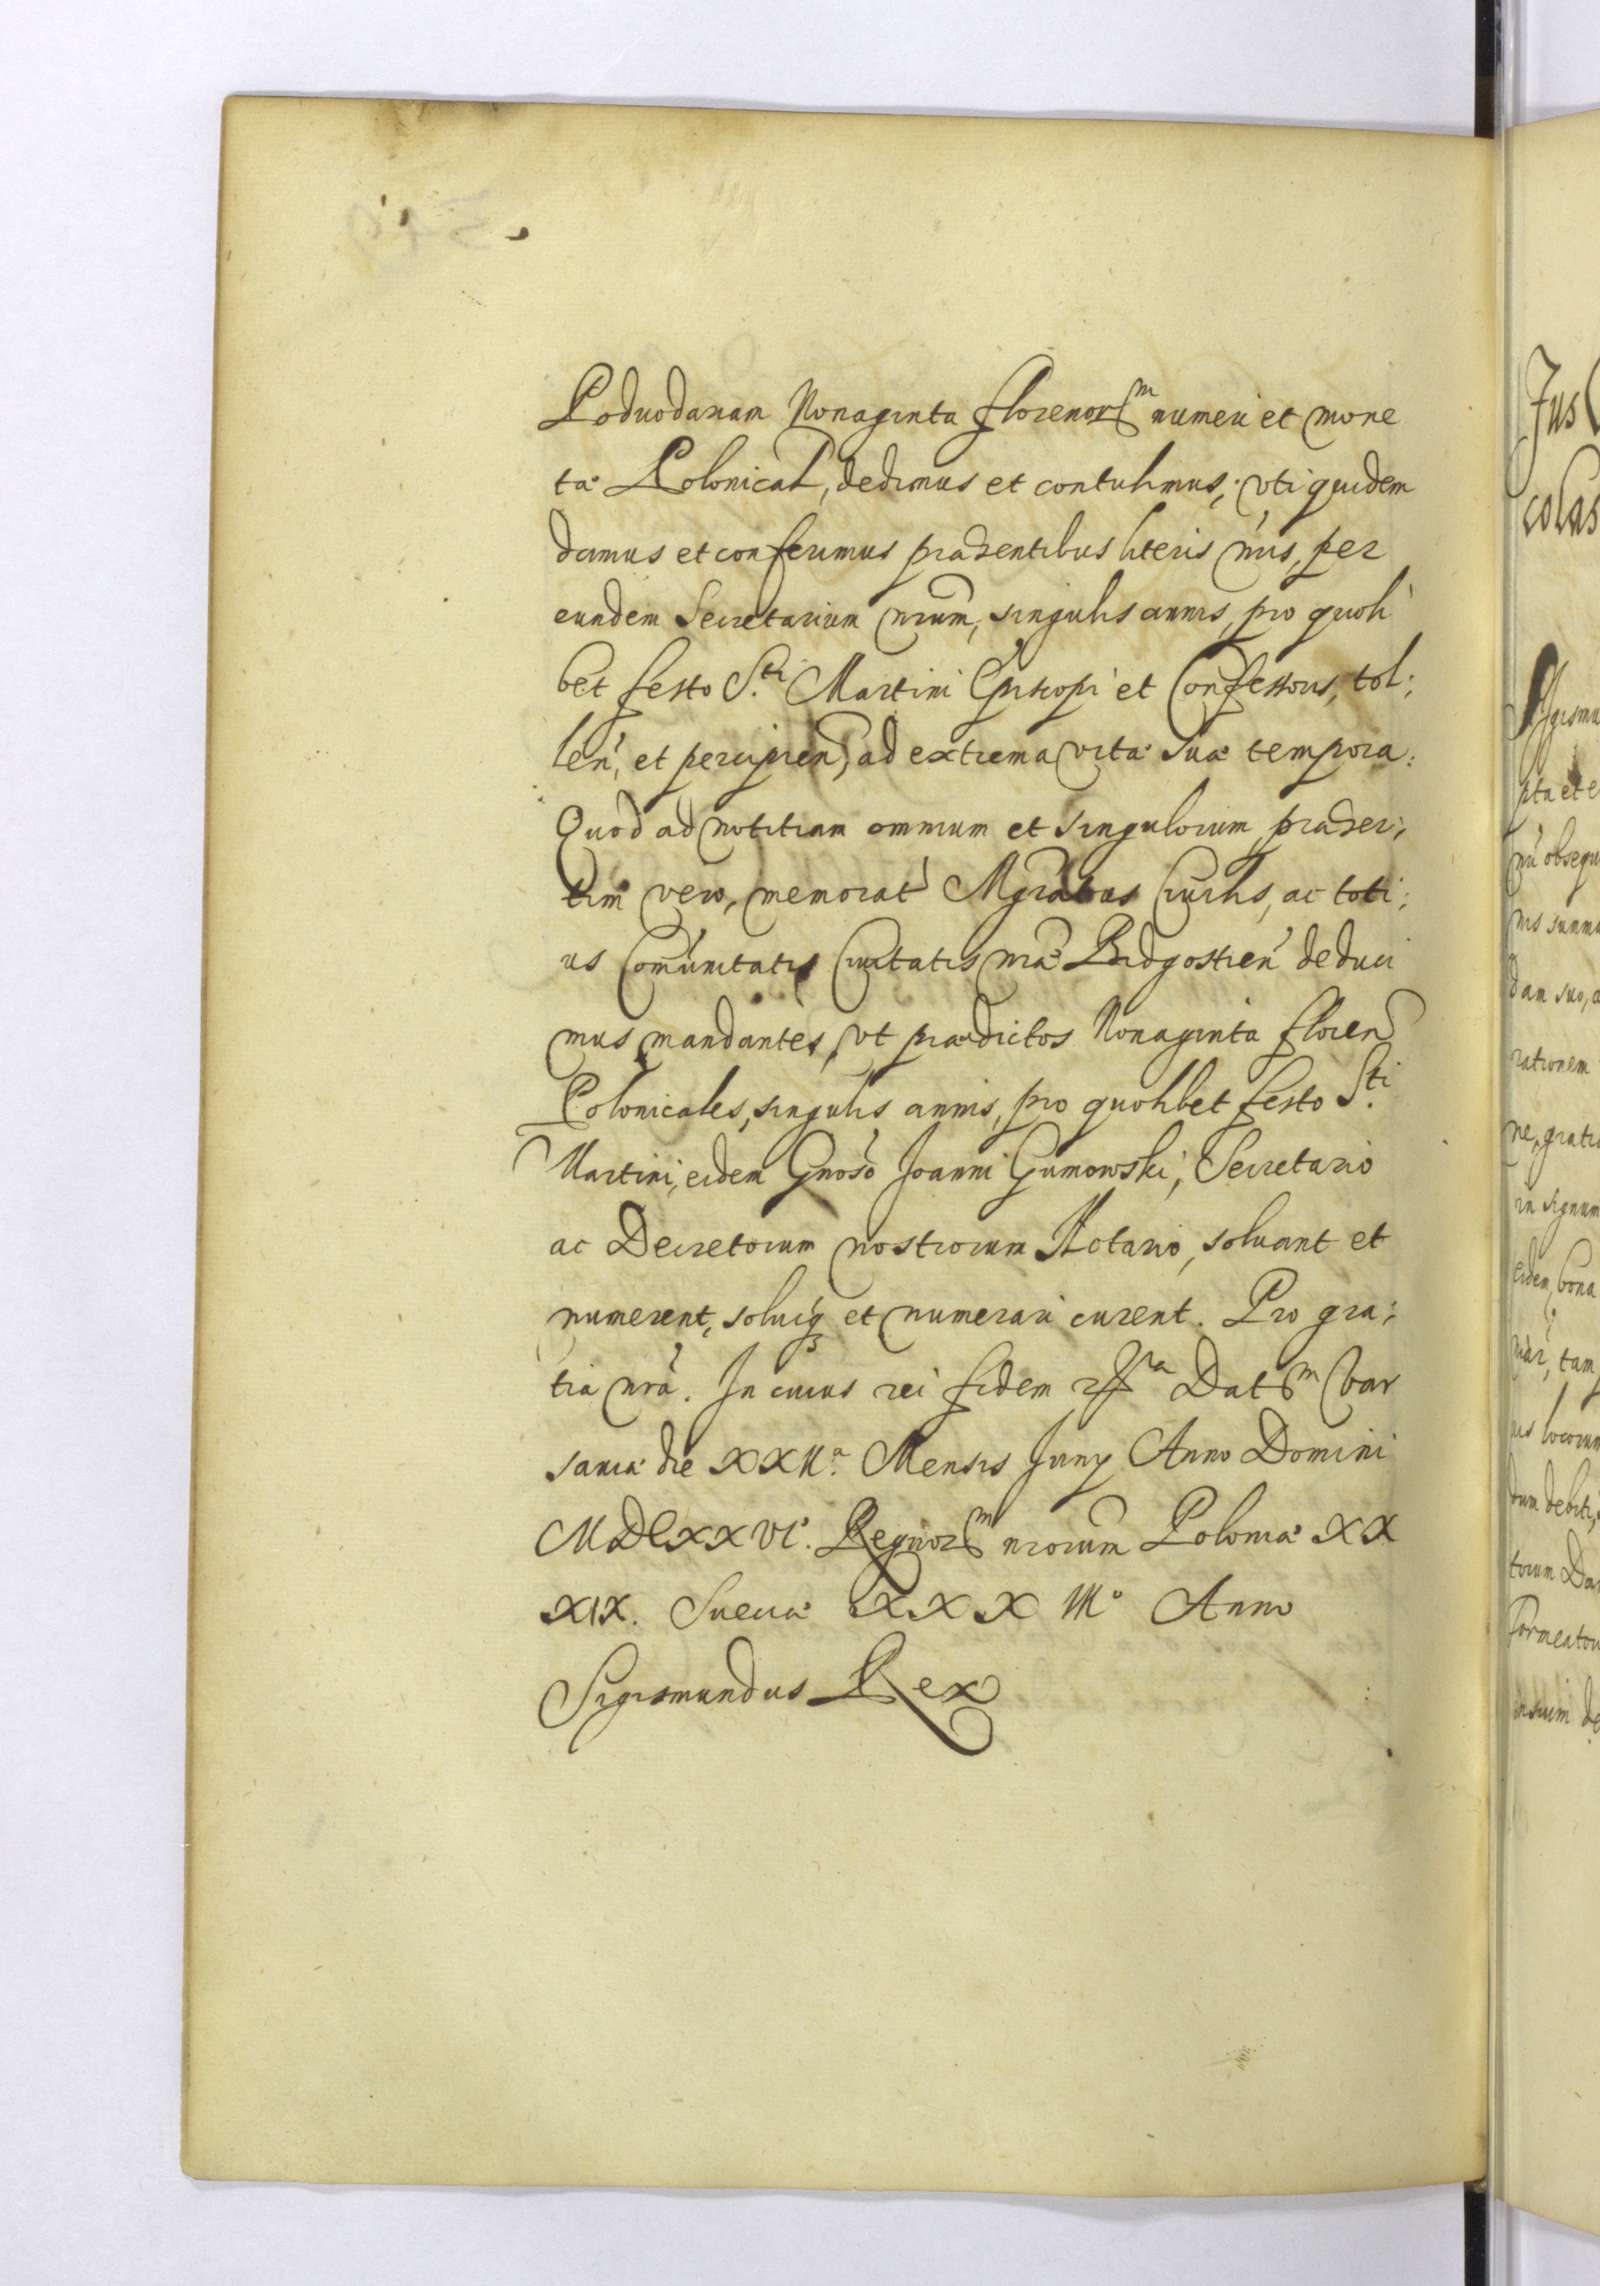 Podvodariam Nonaginta florenorum numeri et mone
tæ Polonical, dedimus et contulimus, uti quidem
damus et conferimus præsentibus literis nris, per
eundem Secretarium nrum, singulis annis, pro quoli
bet festo S.ti Martini Episcopi et Confessoris, tol:
len, et percipien, ad extrema vitæ suæ tempora.
Quod ad notitiam omnium et singulorum, præser:
tim vero, memorat Mgratus Civilis, ac toti:
us Comunitatis Civitatis nræ Bidgostien deduci
mus mandantes, ut prædictos Nonaginta floren
Polonicales, singulis annis, pro quolibet festo S.ti
Martini, eidem Gnoso Joanni Gumowski, Secretario
ac Decretorum nostrorum Notario, solvant et
numerent, solviq et numerari curent. Pro gra:
tia nra. In cuius rei fidem Datum Var
saviæ die XXII.a Mensis Juny Anno Domini
MDCXXVI. Regnorum nrorum Poloniæ XX
XIX. Sueciæ XXXIII.o Anno
Sigismundus Rex
Jus
colas
Sigismu
pta et e
obsequ
nis summa
dam suo, a
rationem
ne, gratia
in signum
eidem, bona
tam
us locorum
dum debiti,
torum Da